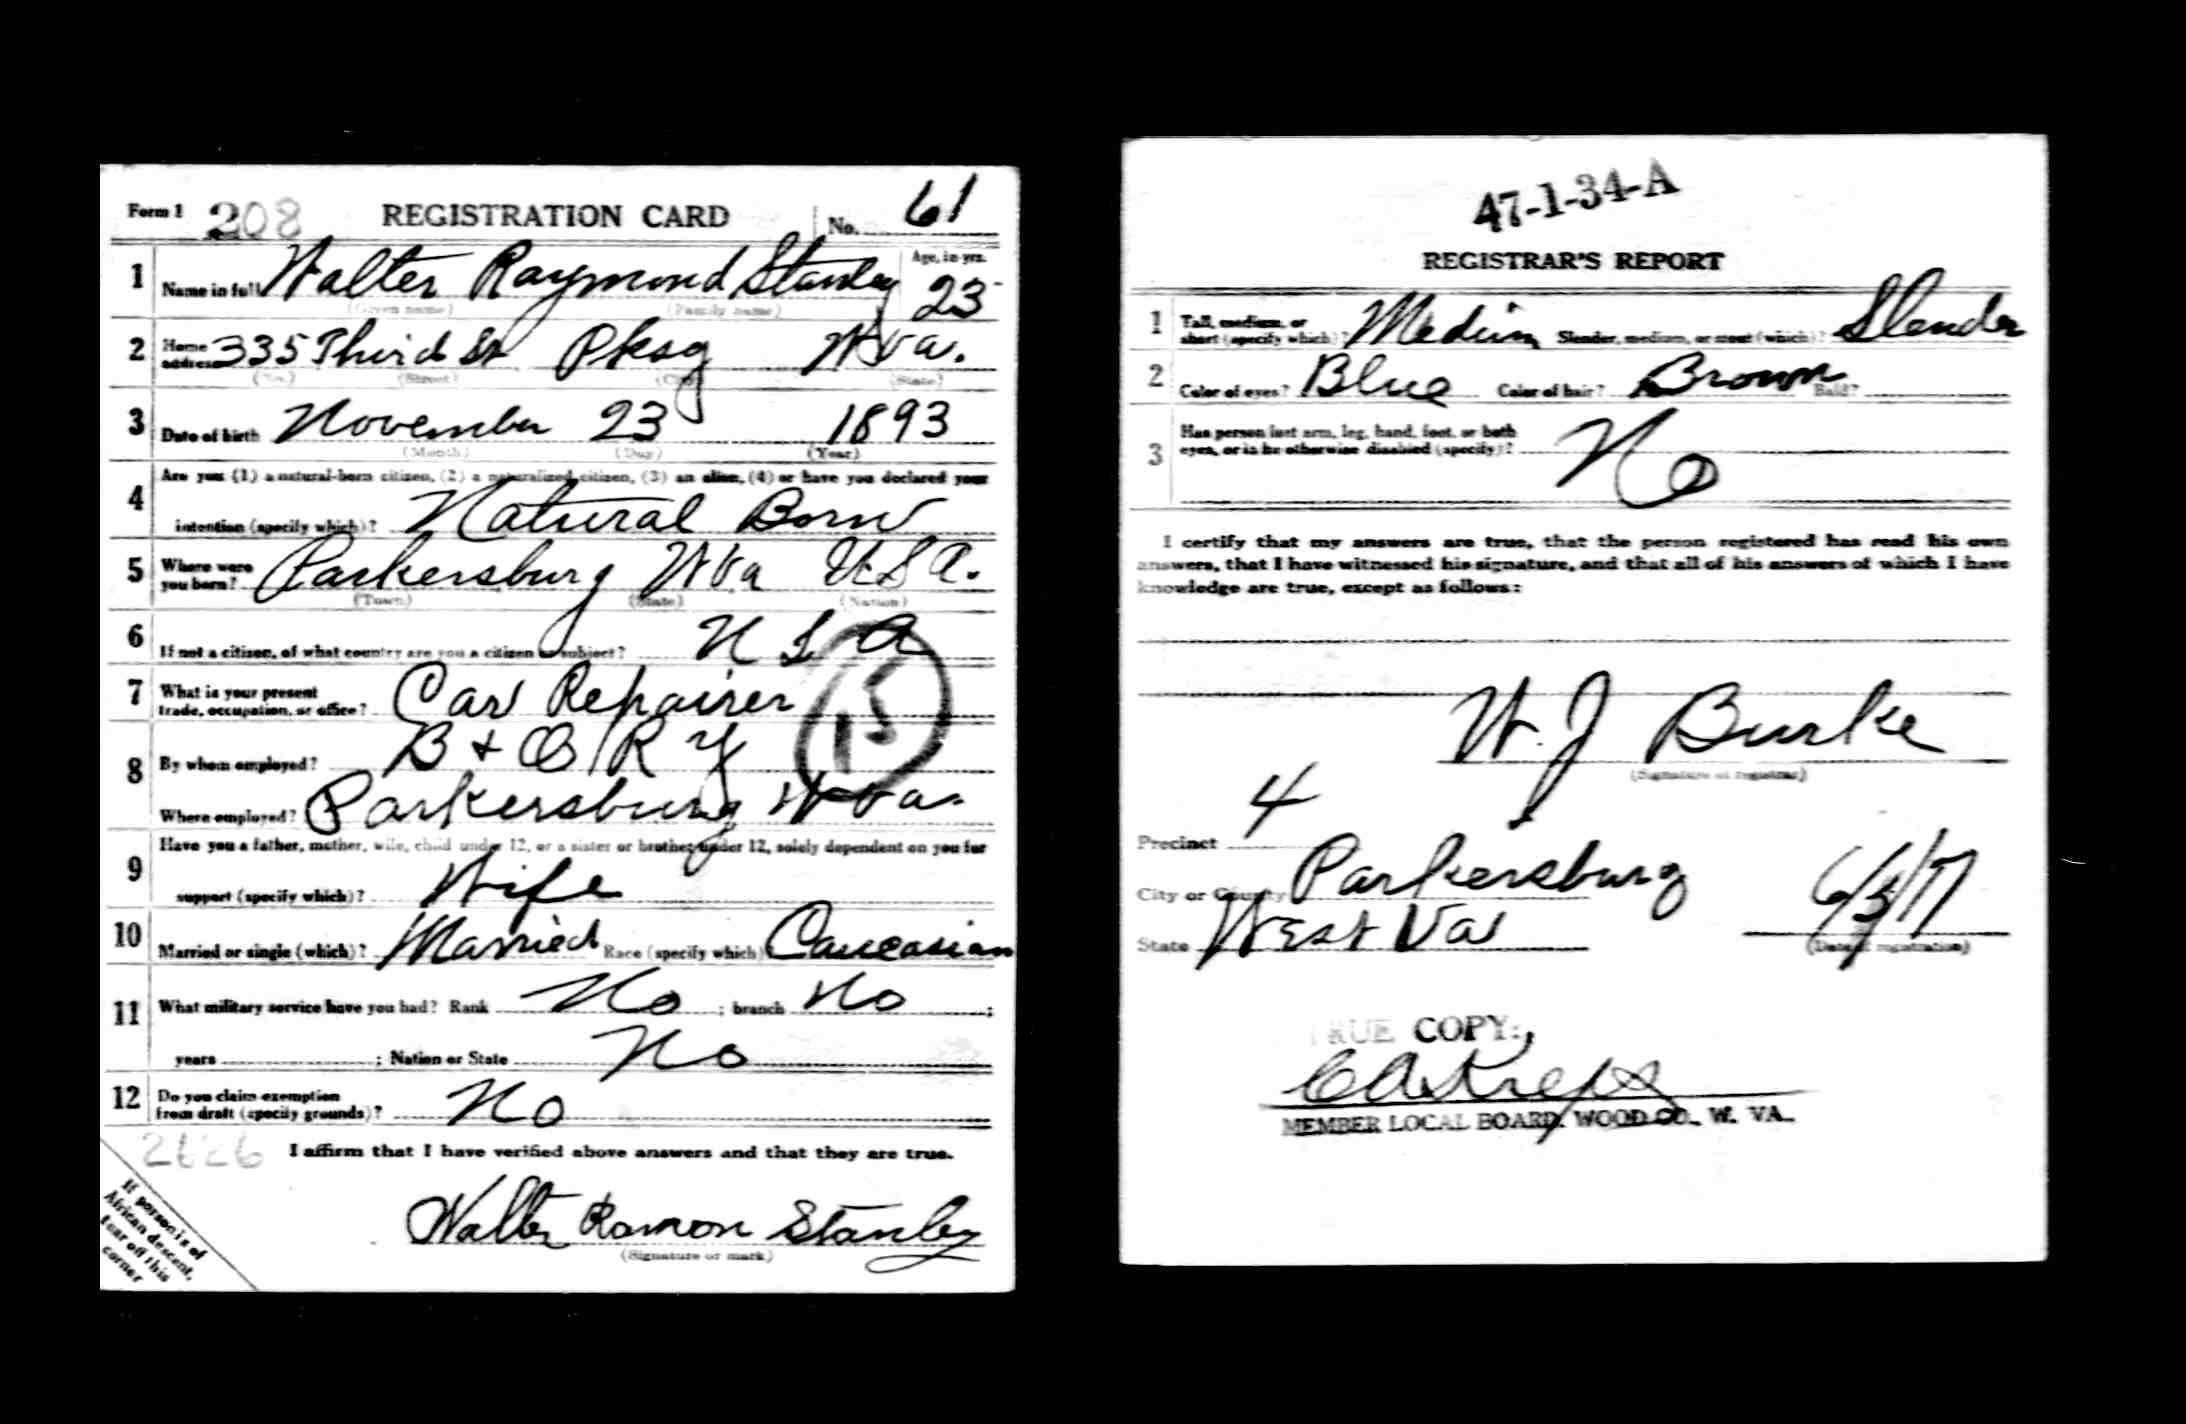 Form 1 208 REGISTRATION CARD No. 61
1 Name in full Walter Raymond Stanley Age, in yrs. 23
(Given name) (Family name)
2 Home address 335 Third St Pksg W Va.
(No.) (Street) (City) (State)
3 Date of birth November 23 1893
(Month) (Day) (Year)
4 Are you (1) a natural-born citizen, (2) a naturalized citizen, (3) an alien, (4) or have you declared your
intention (specify which)? Natural Born
5 Where were you born? Parkersburg W Va U S A.
(Town) (State) (Nation)
6 If not a citizen, of what country are you a citizen or subject? U S A
7 What is your present trade, occupation, or office? Car Repairer
15
8 By whom employed? B + O R y
Where employed? Parkersburg W Va.
9 Have you a father, mother, wife, child under 12, or a sister or brother under 12, solely dependent on you for
support (specify which)? Wife
10 Married or single (which)? Married Race (specify which) Caucasian
11 What military service have you had? Rank No ; branch No ;
years ; Nation or State No
12 Do you claim exemption from draft (specify grounds)? No
I affirm that I have verified above answers and that they are true.
Walter Ramon Stanley
(Signature or mark)
If person is of
African descent,
tear off this
corner
47-1-34-A
REGISTRAR'S REPORT
1 Tall, medium, or short (specify which)? Medium Slender, medium, or stout (which)? Slender
2 Color of eyes? Blue Color of hair? Brown Bald?
3 Has person lost arm, leg, hand, foot, or both
eyes, or is he otherwise disabled (specify)? No
I certify that my answers are true, that the person registered has read his own
answers, that I have witnessed his signature, and that all of his answers of which I have
knowledge are true, except as follows:
W. J Burke
(Signature of registrar)
Precinct 4
City or County Parkersburg 6/5/17
State West Va (Date of registration)
TRUE COPY:
MEMBER LOCAL BOARD. WOOD CO., W. VA.